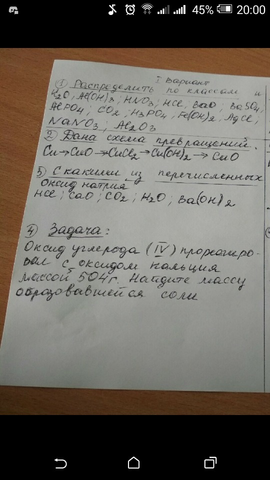 45% 20:00
I вариант
① Распределить по классам и
Al(OH)3, HNO3, HCl, BaO, BaSO4,
AlPO4, CO2, H3PO4, Fe(OH)2, AgCl,
NaNO3, Al2O3
2) Дана схема превращений.
Cu→CuO→CuCl2→Cu(OH)2→CuO
3) С какими из перечисленных
оксид натрия
HCl; CaO; CO2; H2O; Ba(OH)2
④ Задача:
Оксид углерода (IV) прореагиро-
вал с оксидом кальция
массой 504 г. Найдите массу
образовавшейся соли